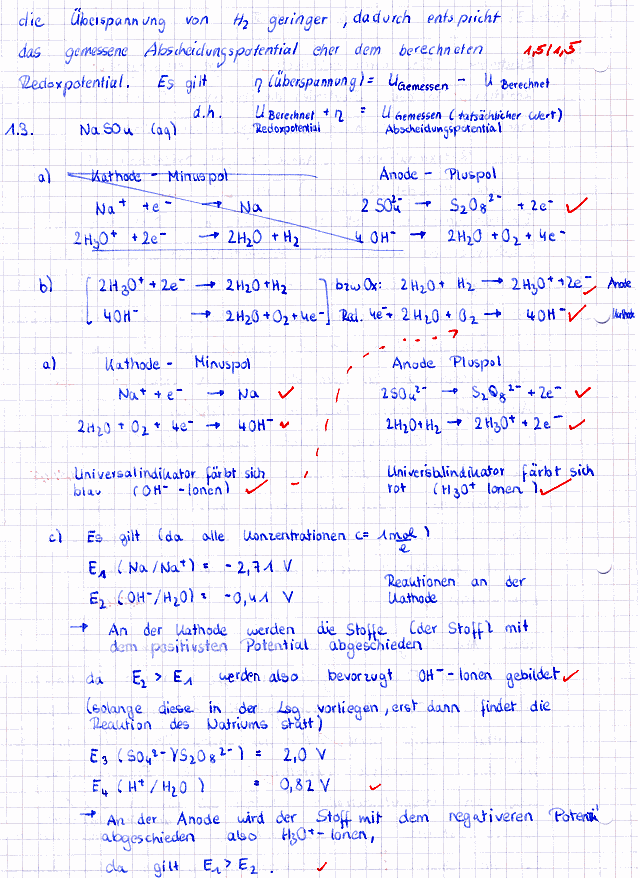 die Überspannung von H₂ geringer, dadurch entspricht
das gemessene Abscheidungspotential eher dem berechneten 1,5/1,5
Redoxpotential. Es gilt η (Überspannung) = U Gemessen - U Berechnet
d.h. U Berechnet + η = U Gemessen (tatsächlicher Wert)
Redoxpotential Abscheidungspotential
1.3. NaSO4 (aq)
a) Kathode - Minuspol Anode - Pluspol
Na⁺ + e⁻ → Na 2 SO4²⁻ → S2O8²⁻ + 2e⁻ ✓
2H3O⁺ + 2e⁻ → 2H2O + H2 4 OH⁻ → 2H2O + O2 + 4e⁻
b) [ 2H3O⁺ + 2e⁻ → 2H2O + H2 ] bzw Ox: 2H2O + H2 → 2H3O⁺ + 2e⁻ ✓ Anode
[ 4OH⁻ → 2H2O + O2 + 4e⁻ ] Red. 4e⁻ + 2H2O + O2 → 4OH⁻ ✓ Kathode
a) Kathode - Minuspol Anode Pluspol
Na⁺ + e⁻ → Na ✓ 2SO4²⁻ → S2O8²⁻ + 2e⁻ ✓
2H2O + O2 + 4e⁻ → 4OH⁻ ✓ 2H2O + H2 → 2H3O⁺ + 2e⁻ ✓
Universalindikator färbt sich Universalindikator färbt sich
blau (OH⁻-Ionen) ✓ rot (H3O⁺ Ionen) ✓
c) Es gilt (da alle Konzentrationen c = 1 mol/l)
E1 (Na/Na⁺) = -2,71 V
E2 (OH⁻/H2O) = -0,41 V Reaktionen an der Kathode
→ An der Kathode werden die Stoffe (der Stoff) mit
dem positivsten Potential abgeschieden
da E2 > E1 werden also bevorzugt OH⁻-Ionen gebildet ✓
(solange diese in der Lsg vorliegen, erst dann findet die
Reaktion des Natriums statt)
E3 (SO4²⁻/S2O8²⁻) = 2,0 V
E4 (H⁺/H2O) = 0,82 V ✓
→ An der Anode wird der Stoff mit dem negativeren Potential
abgeschieden also H3O⁺-Ionen,
da gilt E1 > E2. ✓